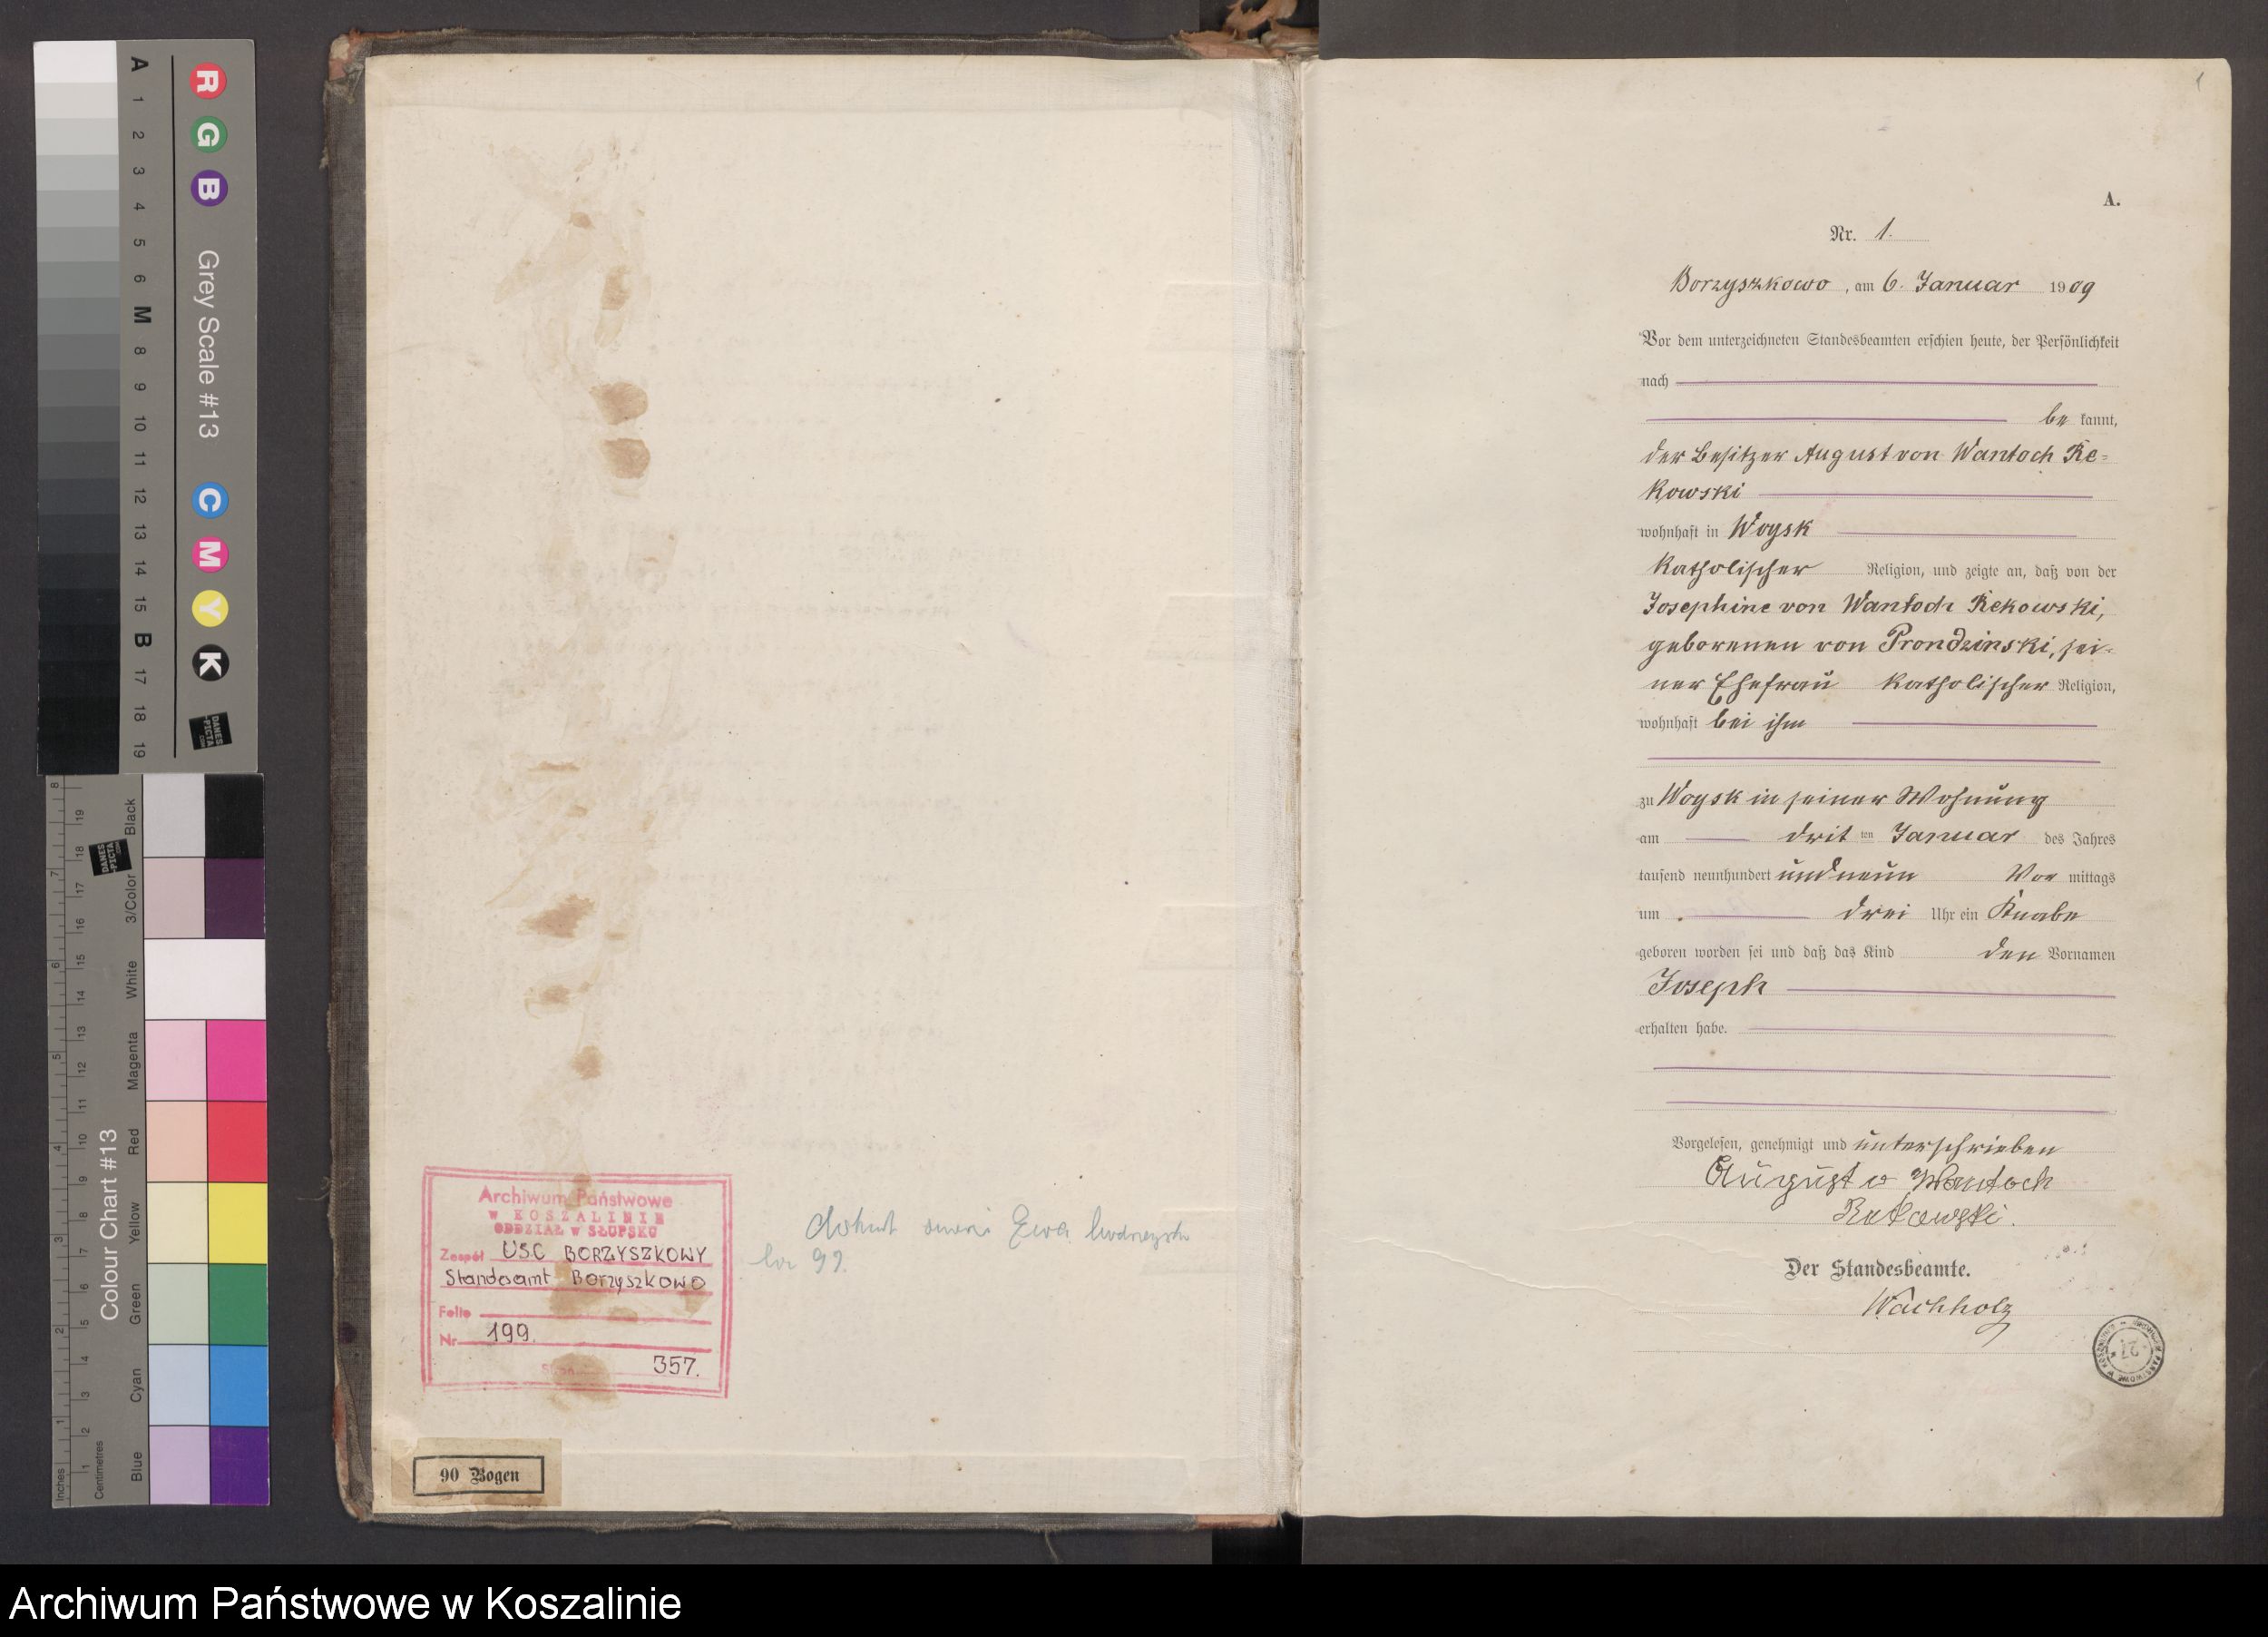 A 1 2 3 4 5 6 M 8 9 10 11 12 13 14 15 B 17 18 19
R G B
Grey Scale #13
C M Y K
DANES
-PICTA
.COM
Colour Chart #13
Blue Cyan Green Yellow Red Magenta White 3/Color Black
Inches 1 2 3 4 5 6 7 8
Centimetres 1 2 3 4 5 6 7 8 9 10 11 12 13 14 15 16 17 18 19
Archiwum Państwowe
W KOSZALINIE
ODDZIAŁ W SŁUPSKU
Zespół USC BORZYSZKOWY
Standesamt Borzyszkowo
Folio
Nr 199.
357.
Ewa
99.
90 Bogen
1
A.
Nr. 1.
Borzyszkowo, am 6. Januar 1909
Vor dem unterzeichneten Standesbeamten erschien heute, der Persönlichkeit
nach
be kannt,
der Besitzer August von Wantoch Re-
kowski
wohnhaft in Woysk
katholischer Religion, und zeigte an, daß von der
Josephine von Wantoch Rekowski,
geborenen von Prondzinski, sei-
ner Ehefrau katholischer Religion,
wohnhaft bei ihm
zu Woysk in seiner Wohnung
am drit ten Januar des Jahres
tausend neunhundert und neun Vor mittags
um drei Uhr ein Knabe
geboren worden sei und daß das Kind den Vornamen
Joseph
erhalten habe.
Vorgelesen, genehmigt und unterschrieben
August v Wantoch
Rekowski.
Der Standesbeamte.
Wachholz
27
Archiwum Państwowe w Koszalinie